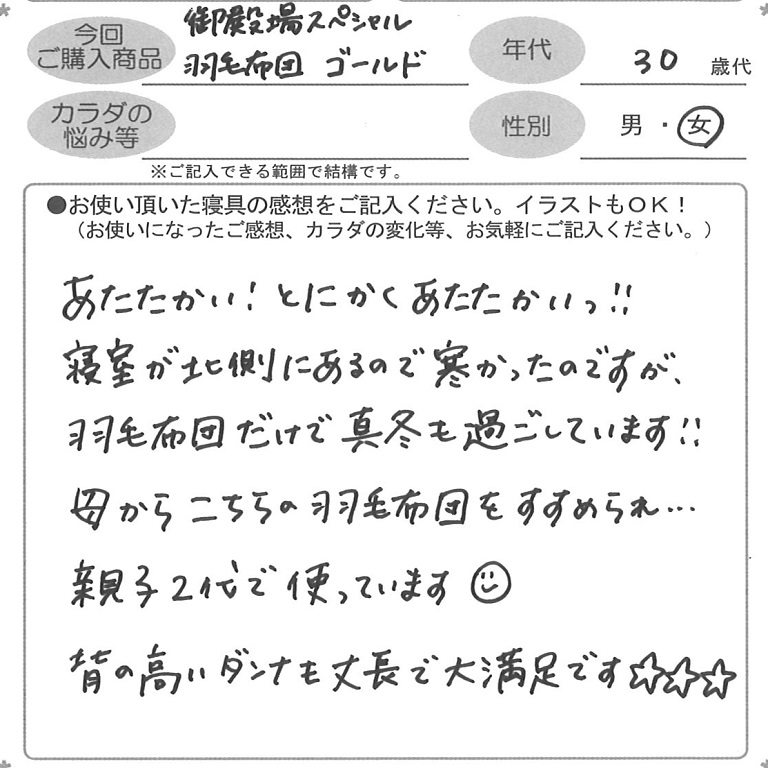 今回
ご購入商品
御殿場スペシャル
羽毛布団 ゴールド
年代
30 歳代
カラダの
悩み等
性別
男・女
※ご記入できる範囲で結構です。
●お使い頂いた寝具の感想をご記入ください。イラストもOK！
（お使いになったご感想、カラダの変化等、お気軽にご記入ください。）
あたたかい！とにかくあたたかいっ!!
寝室が北側にあるので寒かったのですが、
羽毛布団だけで真冬も過ごしています!!
母からこちらの羽毛布団をすすめられ…
親子2代で使っています☺
背の高いダンナも丈長で大満足です☆☆☆